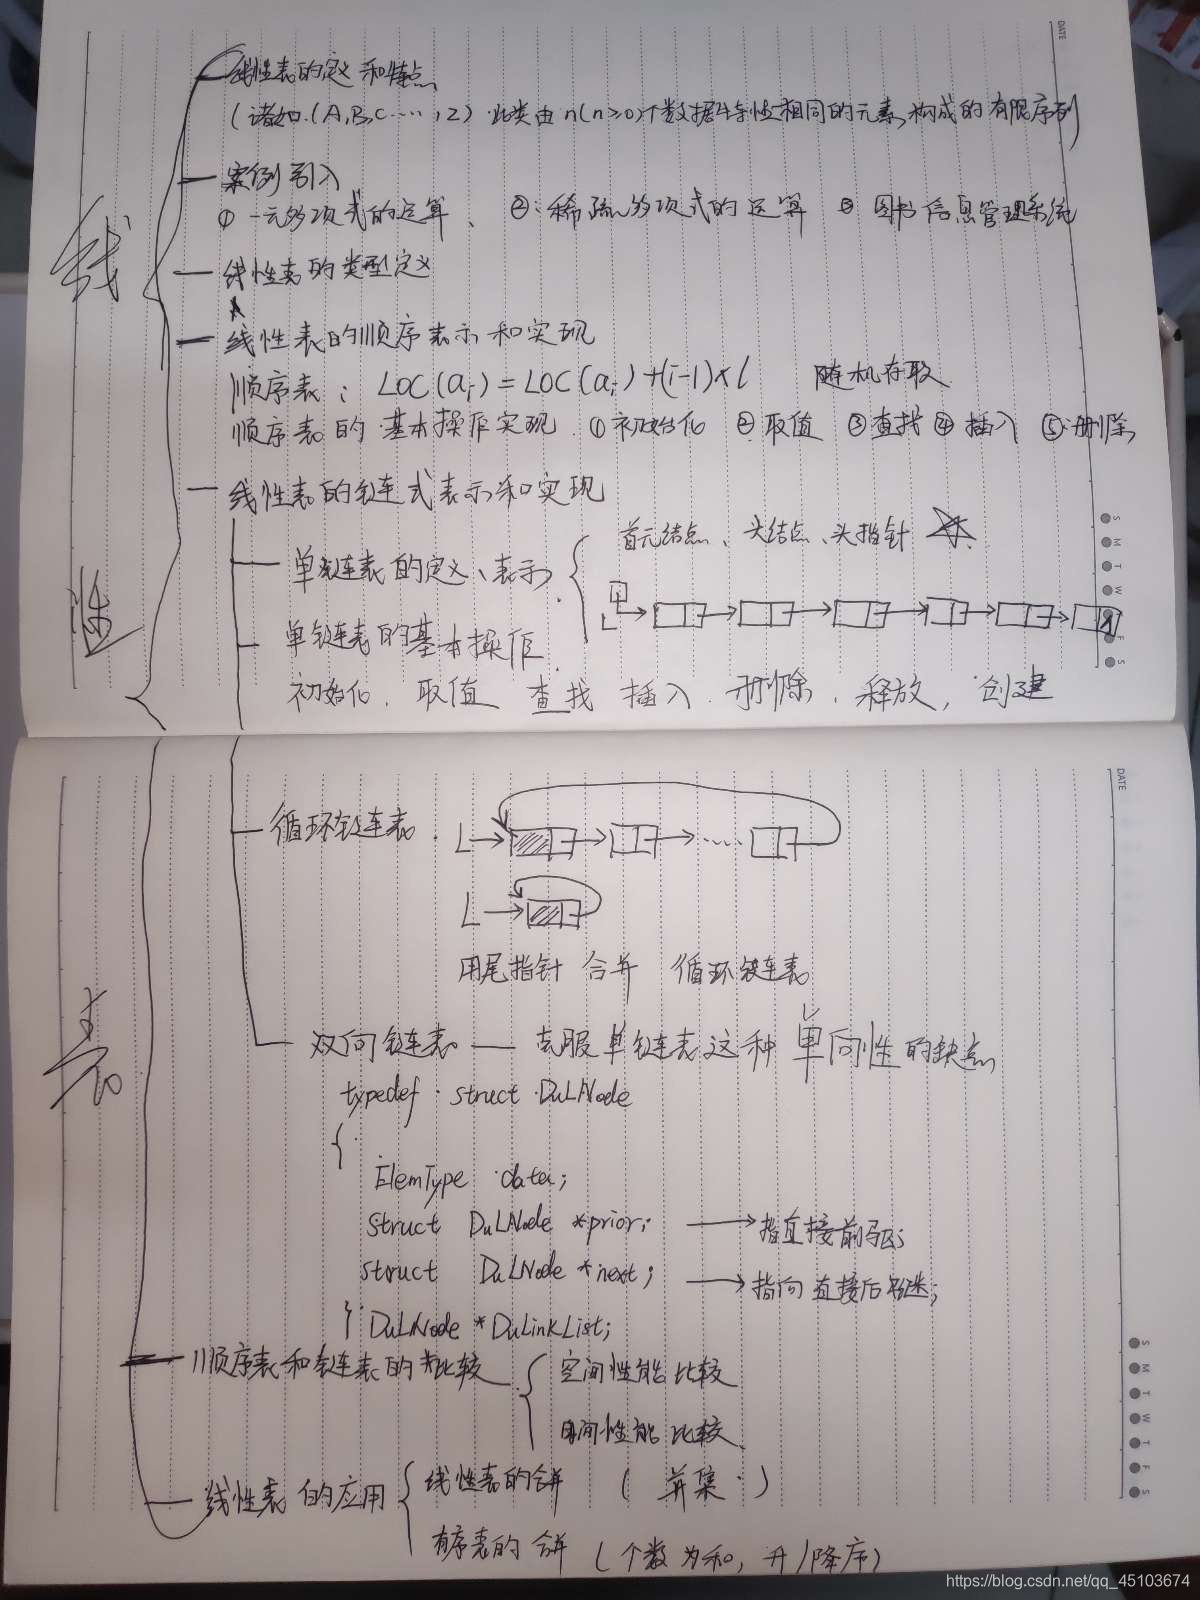 DATE
线性表的定义和特点
(诸如.(A,B,C……,Z) 此类由n(n≥0)个数据特性相同的元素构成的有限序列
案例引入
① 一元多项式的运算、 ② 稀疏多项式的运算 ③ 图书信息管理系统
线性表的类型定义
线性表的顺序表示和实现
顺序表: LOC(ai)=LOC(ai)+(i-1)×l 随机存取
顺序表的基本操作实现 ①初始化 ②取值 ③查找 ④插入 ⑤删除
线性表的链式表示和实现
首元结点、头结点、头指针
单链表的定义、表示
L
单链表的基本操作
初始化. 取值 查找 插入. 删除. 释放, 创建
S M T W F S
DATE
线性表
循环链表.
L
L
用尾指针 合并 循环链表
双向链表 — 克服单链表这种单向性的缺点
typedef struct DuLNode
{
ElemType data;
struct DuLNode *prior; 指直接前驱;
struct DuLNode *next; 指向直接后继;
} DuLNode *DuLinkList;
顺序表和链表的比较
空间性能比较
时间性能比较
线性表的应用
线性表的合并 (并集)
有序表的合并 (个数为和, 升/降序)
S M T W T F S
https://blog.csdn.net/qq_45103674